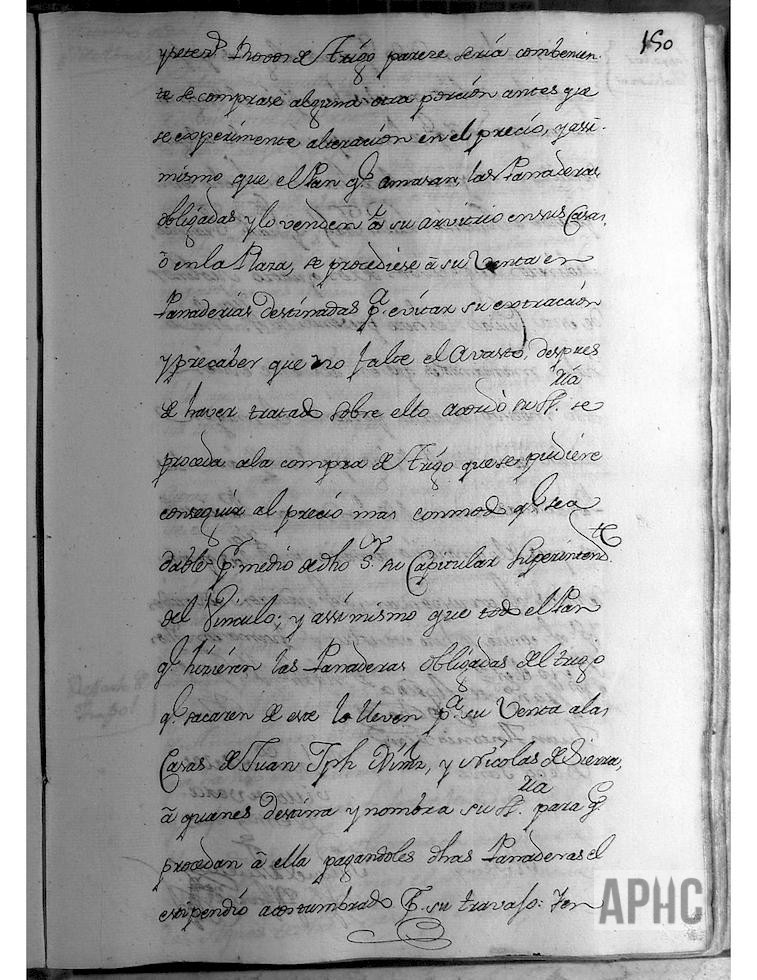 150
y seten.ᵈ Rovos de Trigo pareze sería combenien-
te se comprase alguna otra porción antes que
se experimente alteración en el precio, y assi-
mismo que el Pan q.ᵉ amasan, las Panaderas
obligadas y lo venden â su arvitrio en sus Casas,
ô en la Plaza, se procediese â su Venta en
Panaderias destinadas p.ᵃ evitar su extracción
y precaber que no falte el Avasto, despues
de haver tratado sobre ello acordó su S.ʳⁱᵃ se
proceda ala compra de Trigo que se pudiére
conseguir al precio mas conmodo q.ᵉ sea
dable p.ʳ medio de dho S.ʳ su Capitular Superintend.ᵗᵉ
del Vinculo; y assimismo que todo el Pan
q.ᵉ hiziéren las Panaderas obligadas del trigo
q.ᵉ sacaren de este lo lleven p.ᵃ su Venta alas
Casas de Juan Jph Mŕnz, y Nicolas de Sierra,
â quienes destina y nombra su S.ʳⁱᵃ para q.ᵉ
procedan â ella pagandoles dhas Panaderas el
estipendio acostumbrado p.ʳ su travajo: Yen
APHC